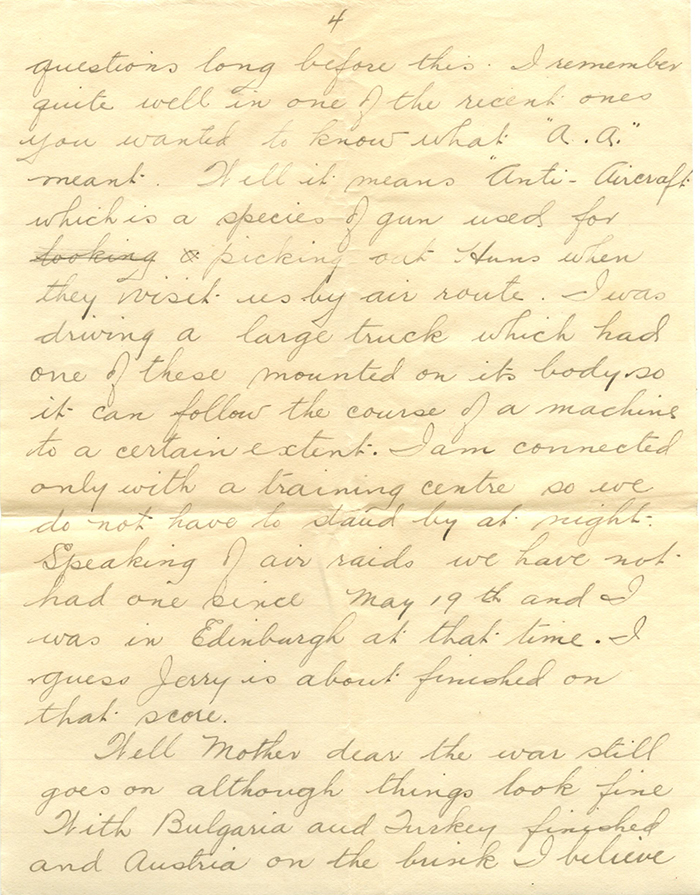 4
questions long before this. I remember
quite well in one of the recent ones
you wanted to know what "A.A."
meant. Well it means "Anti-Aircraft
which is a species of gun used for
looking & picking out Huns when
they visit us by air route. I was
driving a large truck which had
one of these mounted on its body so
it can follow the course of a machine
to a certain extent. I am connected
only with a training centre so we
do not have to stand by at night.
Speaking of air raids we have not
had one since May 19th and I
was in Edinburgh at that time. I
guess Jerry is about finished on
that score.
Well Mother dear the war still
goes on although things look fine
With Bulgaria and Turkey finished
and Austria on the brink I believe